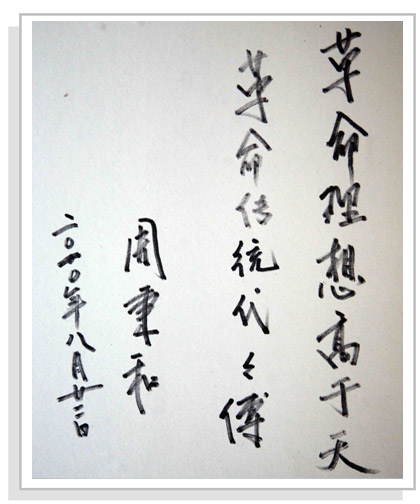 革命理想高于天
革命传统代々傳
周秉和
二〇一〇年八月廿二日